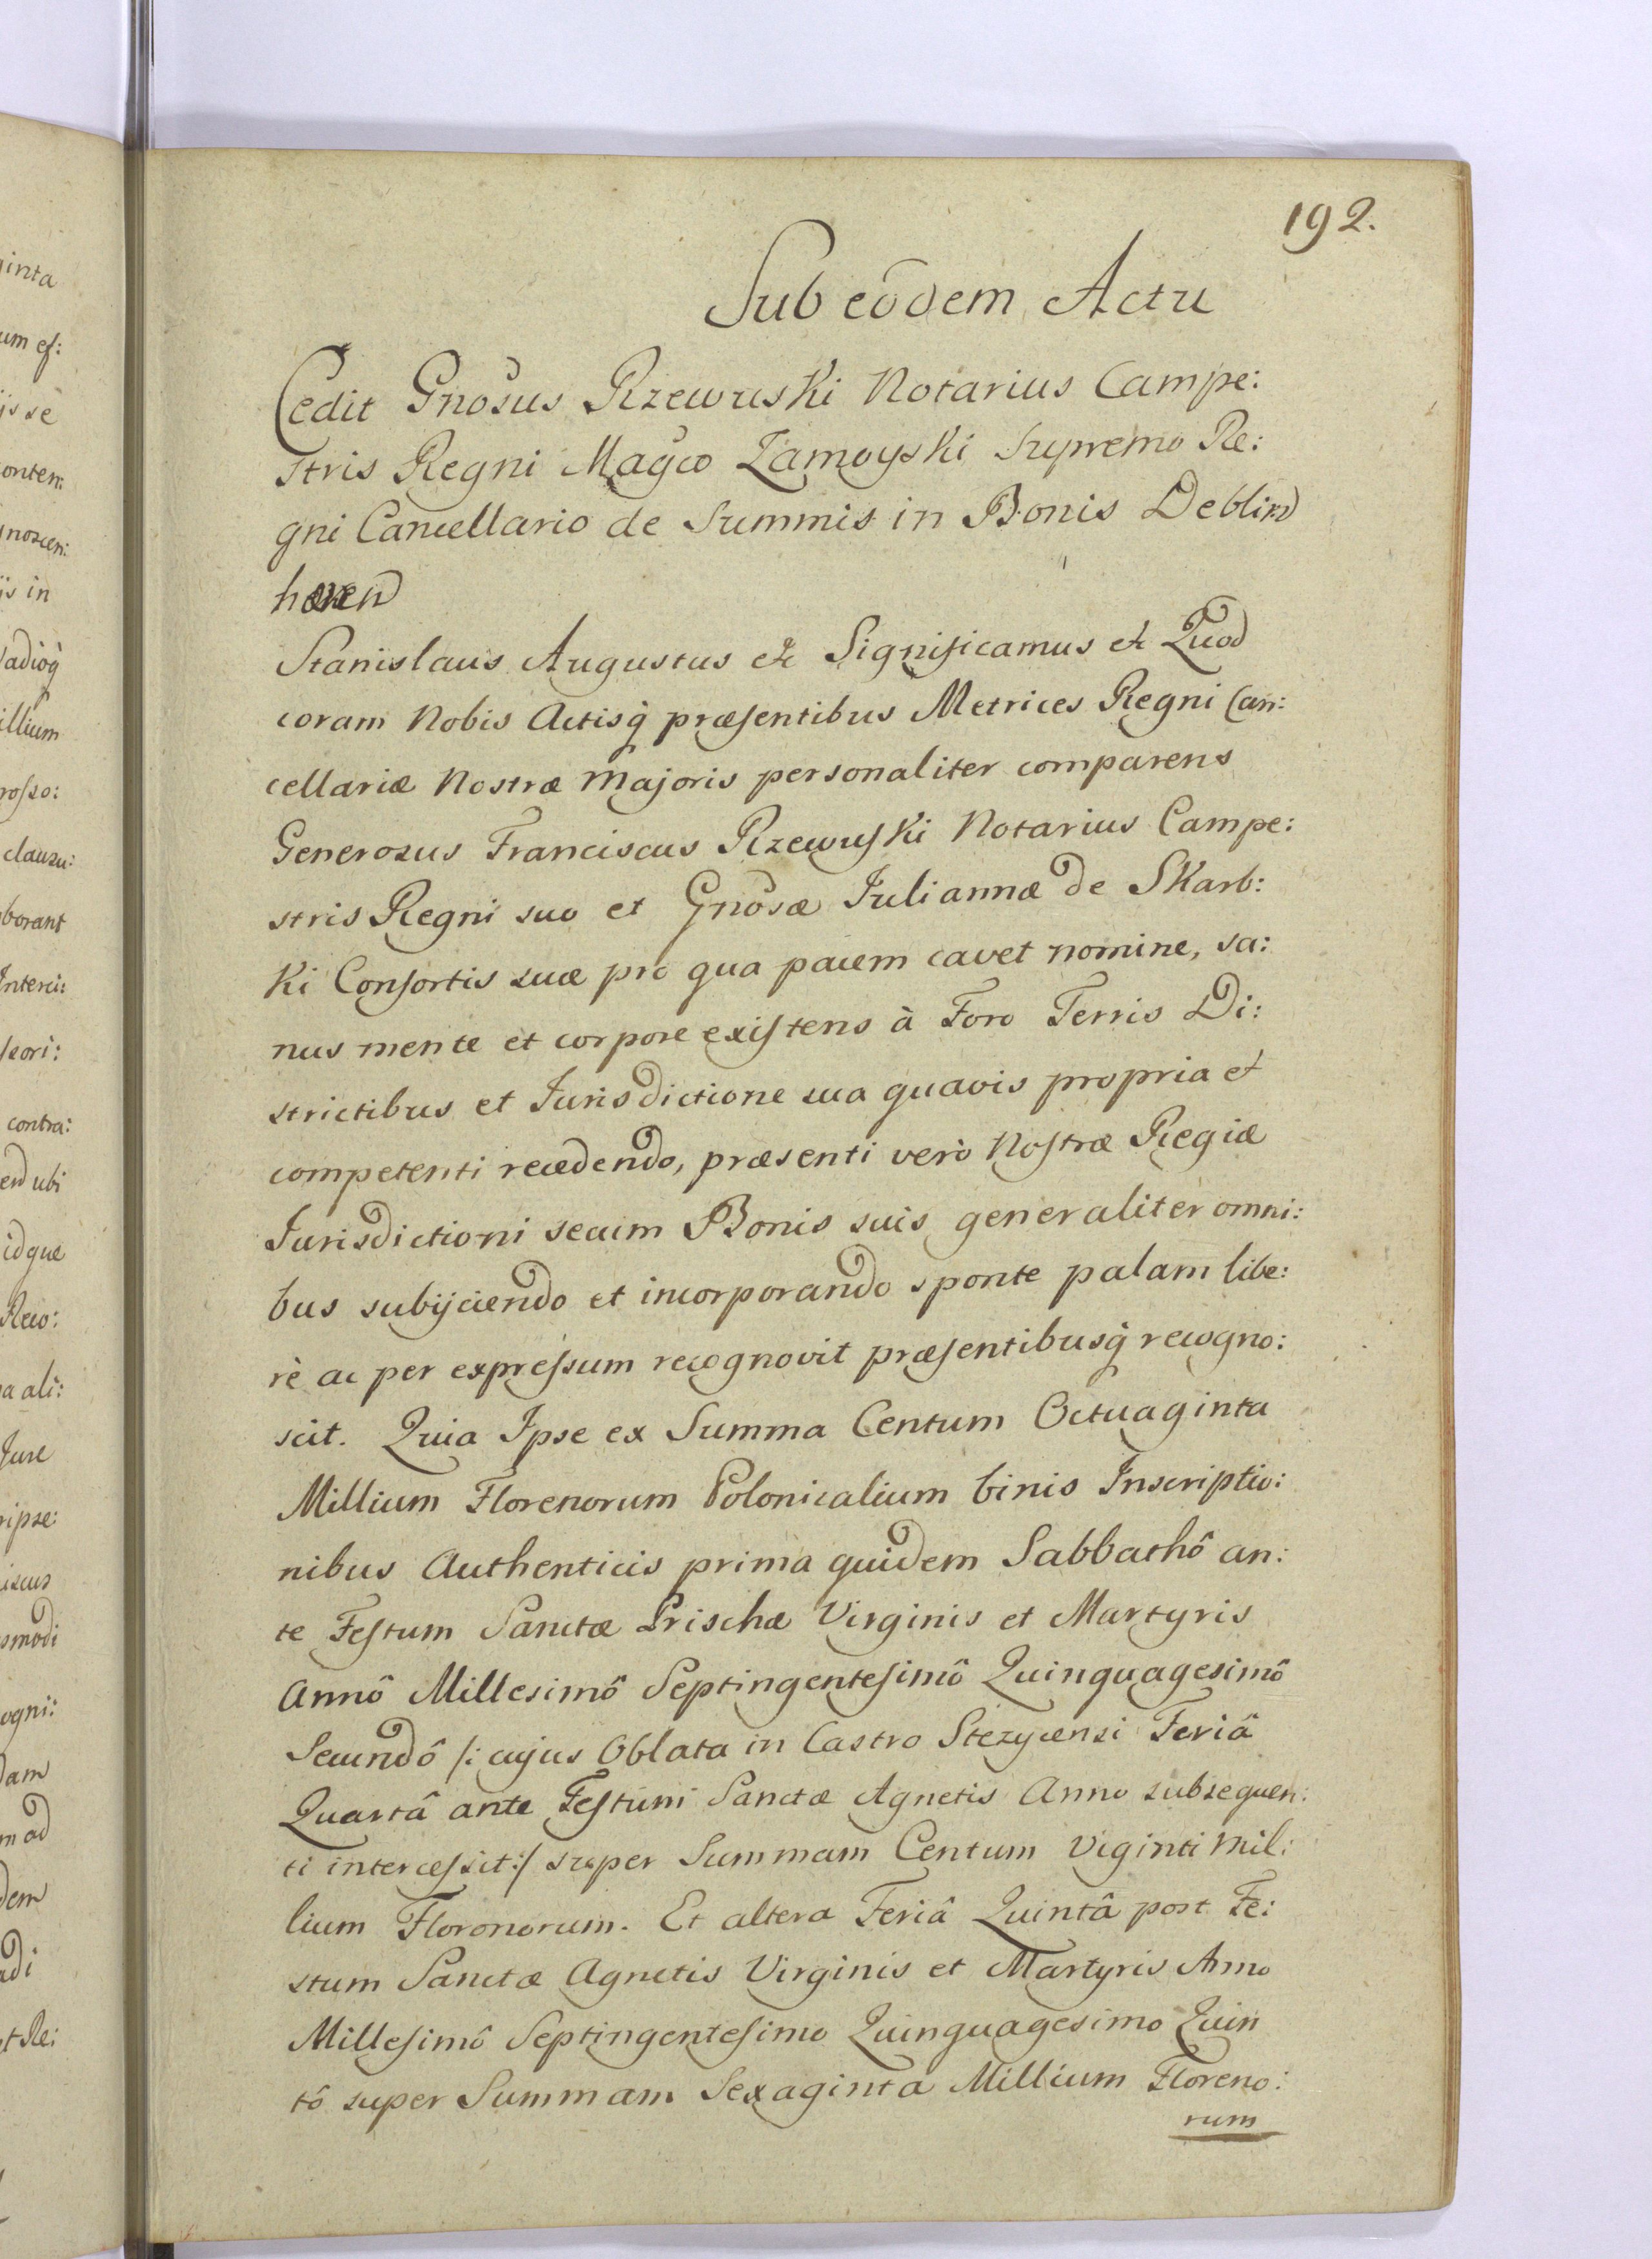 192.
Sub eôdem Actu
Cedit Gnosus Rzewuski Notarius Campe:
stris Regni Magco Zamoyski Supremo Re:
gni Cancellario de Summis in Bonis Deblin
haben
Stanislaus Augustus etc Significamus etc Quod
coram Nobis Actisq̀ præsentibus Metrices Regni Can:
cellariæ Nostræ Majoris personaliter comparens
Generosus Franciscus Rzewuski Notarius Campe:
stris Regni suo et Gnosæ Juliannæ de Skarb:
ki Consortis suæ pro qua pacem cavet nomine, sa:
nus mente et corpore existens à Foro Terris Di:
strictibus et Jurisdictione sua quavis propria et
competenti recedendo, præsenti verò Nostræ Regiæ
Jurisdictioni secum Bonis suis generaliter omni:
bus subijciendo et incorporando sponte palam libe:
rè ac per expressum recognovit præsentibusq̀ recogno:
scit. Quia Ipse ex Summa Centum Octuaginta
Millium Florenorum Polonicalium binis Inscriptio:
nibus Authenticis prima quidem Sabbathô an:
te Festum Sanctæ Prischæ Virginis et Martyris
Annô Millesimô Septingentesimô Quinquagesimô
Secundô /: cujus Oblata in Castro Stezycensi Feriâ
Quartâ ante Festum Sanctæ Agnetis Anno subsequen:
ti intercessit :/ super Summam Centum Viginti Mil:
lium Floronorum. Et altera Feriâ Quintâ post Fe:
stum Sanctæ Agnetis Virginis et Martyris Anno
Millesimô Septingentesimo Quinquagesimo Quin
tô super Summam Sexaginta Millium Floreno:
rum
ginta
um es:
ijs sè
contem
gnoscen:
ijs in
illium
clausu:
borant
contra:
en ubi
idque
Reco:
a ali:
Jure
ripse:
iscus
smodi
ogni:
dam
m ad
dem
adi
t Re: